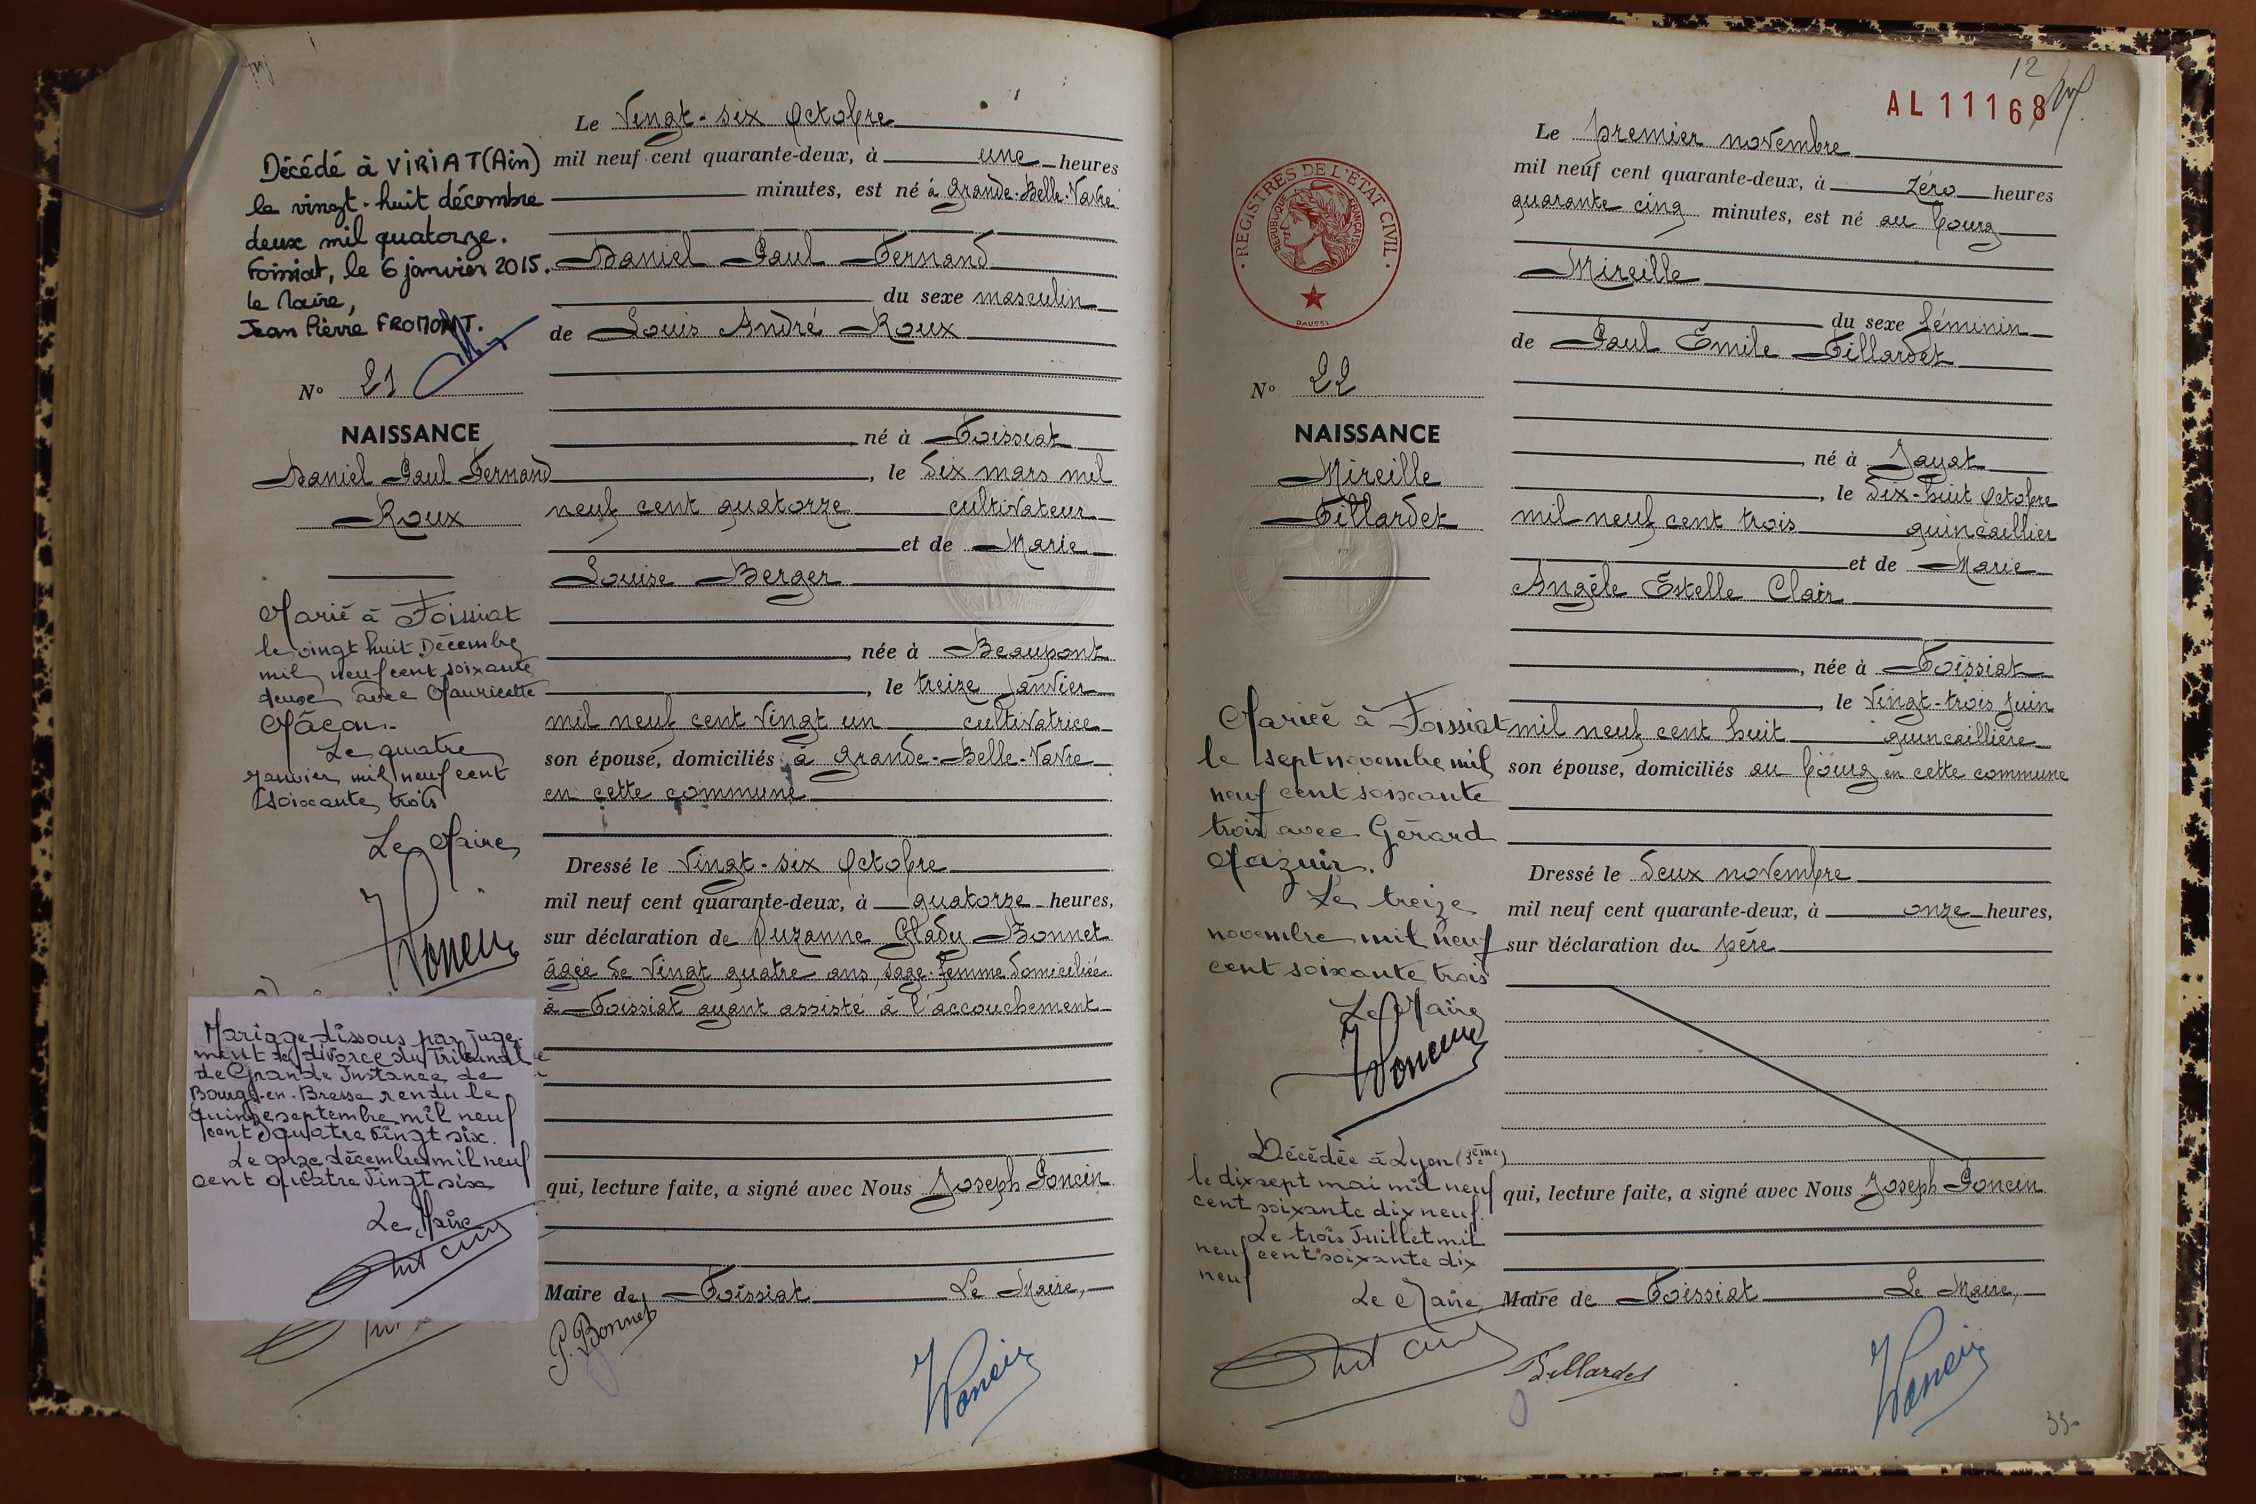 Le Vingt-six Octobre
mil neuf cent quarante-deux, à une heures
minutes, est né à Grande-Belle-Vavre
Daniel Paul Fernand
du sexe masculin
de Louis André Roux
né à Foissiat
, le dix mars mil
neuf cent quatorze cultivateur
et de Marie
Louise Berger
, née à Beaupont
, le treize janvier
mil neuf cent vingt un cultivatrice
son épouse, domiciliés à Grande-Belle-Vavre
en cette commune
Dressé le Vingt-six Octobre
mil neuf cent quarante-deux, à quatorze heures,
sur déclaration de Suzanne Glady Bonnet
âgée de vingt quatre ans, sage-femme domiciliée
à Foissiat ayant assisté à l'accouchement
qui, lecture faite, a signé avec Nous Joseph Poncin
Maire de Foissiat Le Maire,
P. Bonnet
Poncin
Décédé à VIRIAT (Ain)
le vingt-huit décembre
deux mil quatorze.
Foissiat, le 6 janvier 2015.
le Maire,
Jean Pierre FROMONT.
N° 21
NAISSANCE
Daniel Paul Fernand
Roux
Marié à Foissiat
le vingt huit Décembre
mil neuf cent soixante
deux avec Mauricette
Mâcon.
Le quatre
Janvier mil neuf cent
soixante trois
Le Maire
Poncin
Mariage dissous par juge-
ment de divorce du Tribunal
de Grande Instance de
Bourg-en-Bresse rendu le
quinze septembre mil neuf
cent quatre vingt six.
Le onze décembre mil neuf
cent quatre vingt six
Le Maire
12
AL 11168
Le premier novembre
mil neuf cent quarante-deux, à zéro heures
quarante cinq minutes, est né au bourg
Mireille
du sexe féminin
de Paul Emile Tillardet
, né à Jayat
, le dix-huit Octobre
mil neuf cent trois quincaillier
et de Marie
Angèle Estelle Clair
, née à Foissiat
, le Vingt-trois Juin
mil neuf cent huit quincaillière
son épouse, domiciliés au bourg en cette commune
Dressé le deux novembre
mil neuf cent quarante-deux, à onze heures,
sur déclaration du père
qui, lecture faite, a signé avec Nous Joseph Poncin
Maire de Foissiat Le Maire,
Tillardet
Poncin
REGISTRES DE L'ETAT CIVIL
REPUBLIQUE FRANÇAISE
DAUSSY
N° 22
NAISSANCE
Mireille
Tillardet
Mariée à Foissiat
le sept novembre mil
neuf cent soixante
trois avec Gérard
Mazuir.
Le treize
novembre mil neuf
cent soixante trois
Le Maire
Poncin
Décédée à Lyon (3ème)
le dix sept mai mil neuf
cent soixante dix neuf.
Le trois Juillet mil
neuf cent soixante dix
neuf
Le Maire